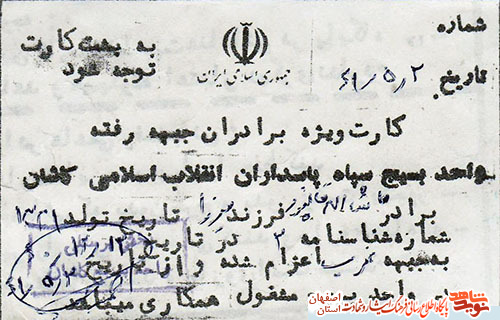 شماره
به پشت کارت
توجه شود
جمهوری اسلامی ایران
تاریخ ۶۱/۵/۲
کارت ویژه برادران جبهه رفته
واحد بسیج سپاه پاسداران انقلاب اسلامی کاشان
برادر فرزند تاریخ تولد
شماره شناسنامه ۳ در تاریخ
به جبهه غرب اعزام شده و از تاریخ
در واحد مشغول همکاری میباشد
پایگاه اطلاع رسانی فرهنگ ایثار و شهادت
استان اصفهان
نوید شاهد